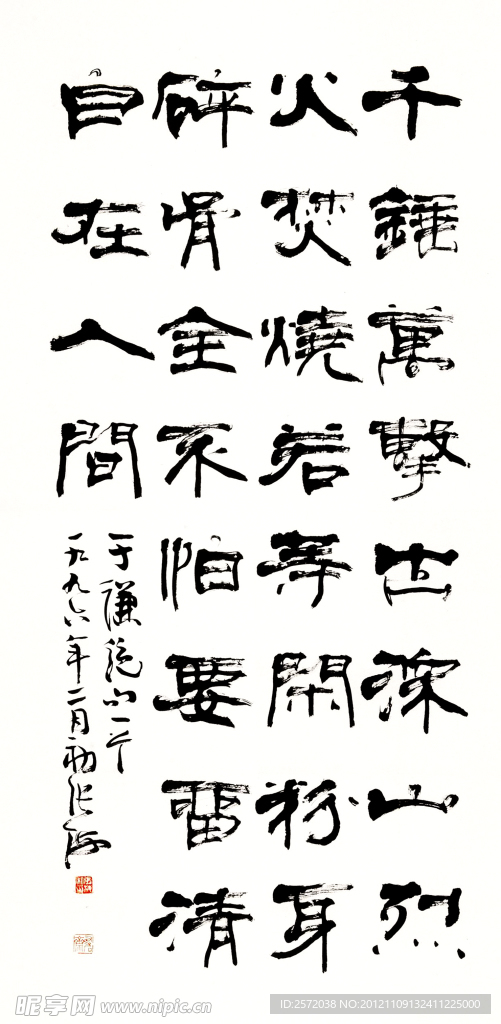 千錘萬擊出深山烈
火焚燒若等閑粉身
碎骨全不怕要留清
白在人間
于謙絕句一首
一九九六年二月初張海
昵享网 www.nipic.cn
ID:2572038 NO:20121109132411225000